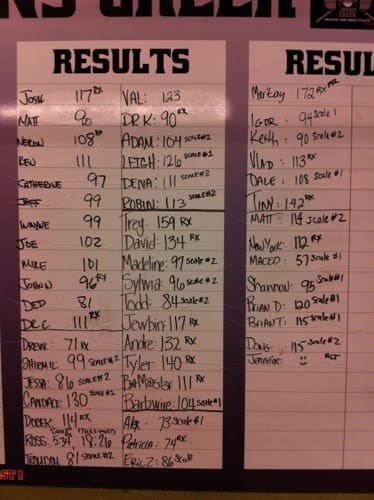 NS CREEK
CREEK
RESULTS
JOSH 117 RX
MATT 90
108 RX
KEN 111
CATHERINE 97
JEFF 99
WAYNE 99
JOE 102
MIKE 101
96 RX
DED 81
DR C 111 RX
DREW: 71 RX
99 SCALE #2
JESSA: 86 SCALE #2
CANDACE: 130 SCALE #1
DEREK: 114 RX
ROSS: 534, 18:26
81 SCALE #2
VAL: 123
DR K: 90 RX
ADAM: 104 SCALE #2
LEIGH: 126 SCALE #1
DENA: 111 SCALE #2
ROBIN: 113 SCALE #2
Trey: 159 RX
David: 134 RX
Madeline: 97 Scale #2
Sylwia: 96 Scale #2
Todd: 84 Scale #2
Jewbin: 117 RX
Andre: 132 RX
Tyler: 140 RX
111 RX
Barbwire: 104 Scale #1
Alex: 73 Scale #1
Patricia: 74 RX
Eric Z: 86 Scale
RESUL
Markay: 172 RX PR
IGOR: 94 Scale 1
Keith: 90 Scale #2
VLAD: 113 RX
DALE: 108 Scale #1
TINY: 142 RX
MATT: 114 Scale #2
NEW YORK: 112 RX
MACEO: 57 Scale #1
Shannon: 95 Scale #1
BRIAN D: 120 Scale #1
BRIAN T: 115 Scale #1
DOUG: 115 Scale #2
Jennifer:
ST!